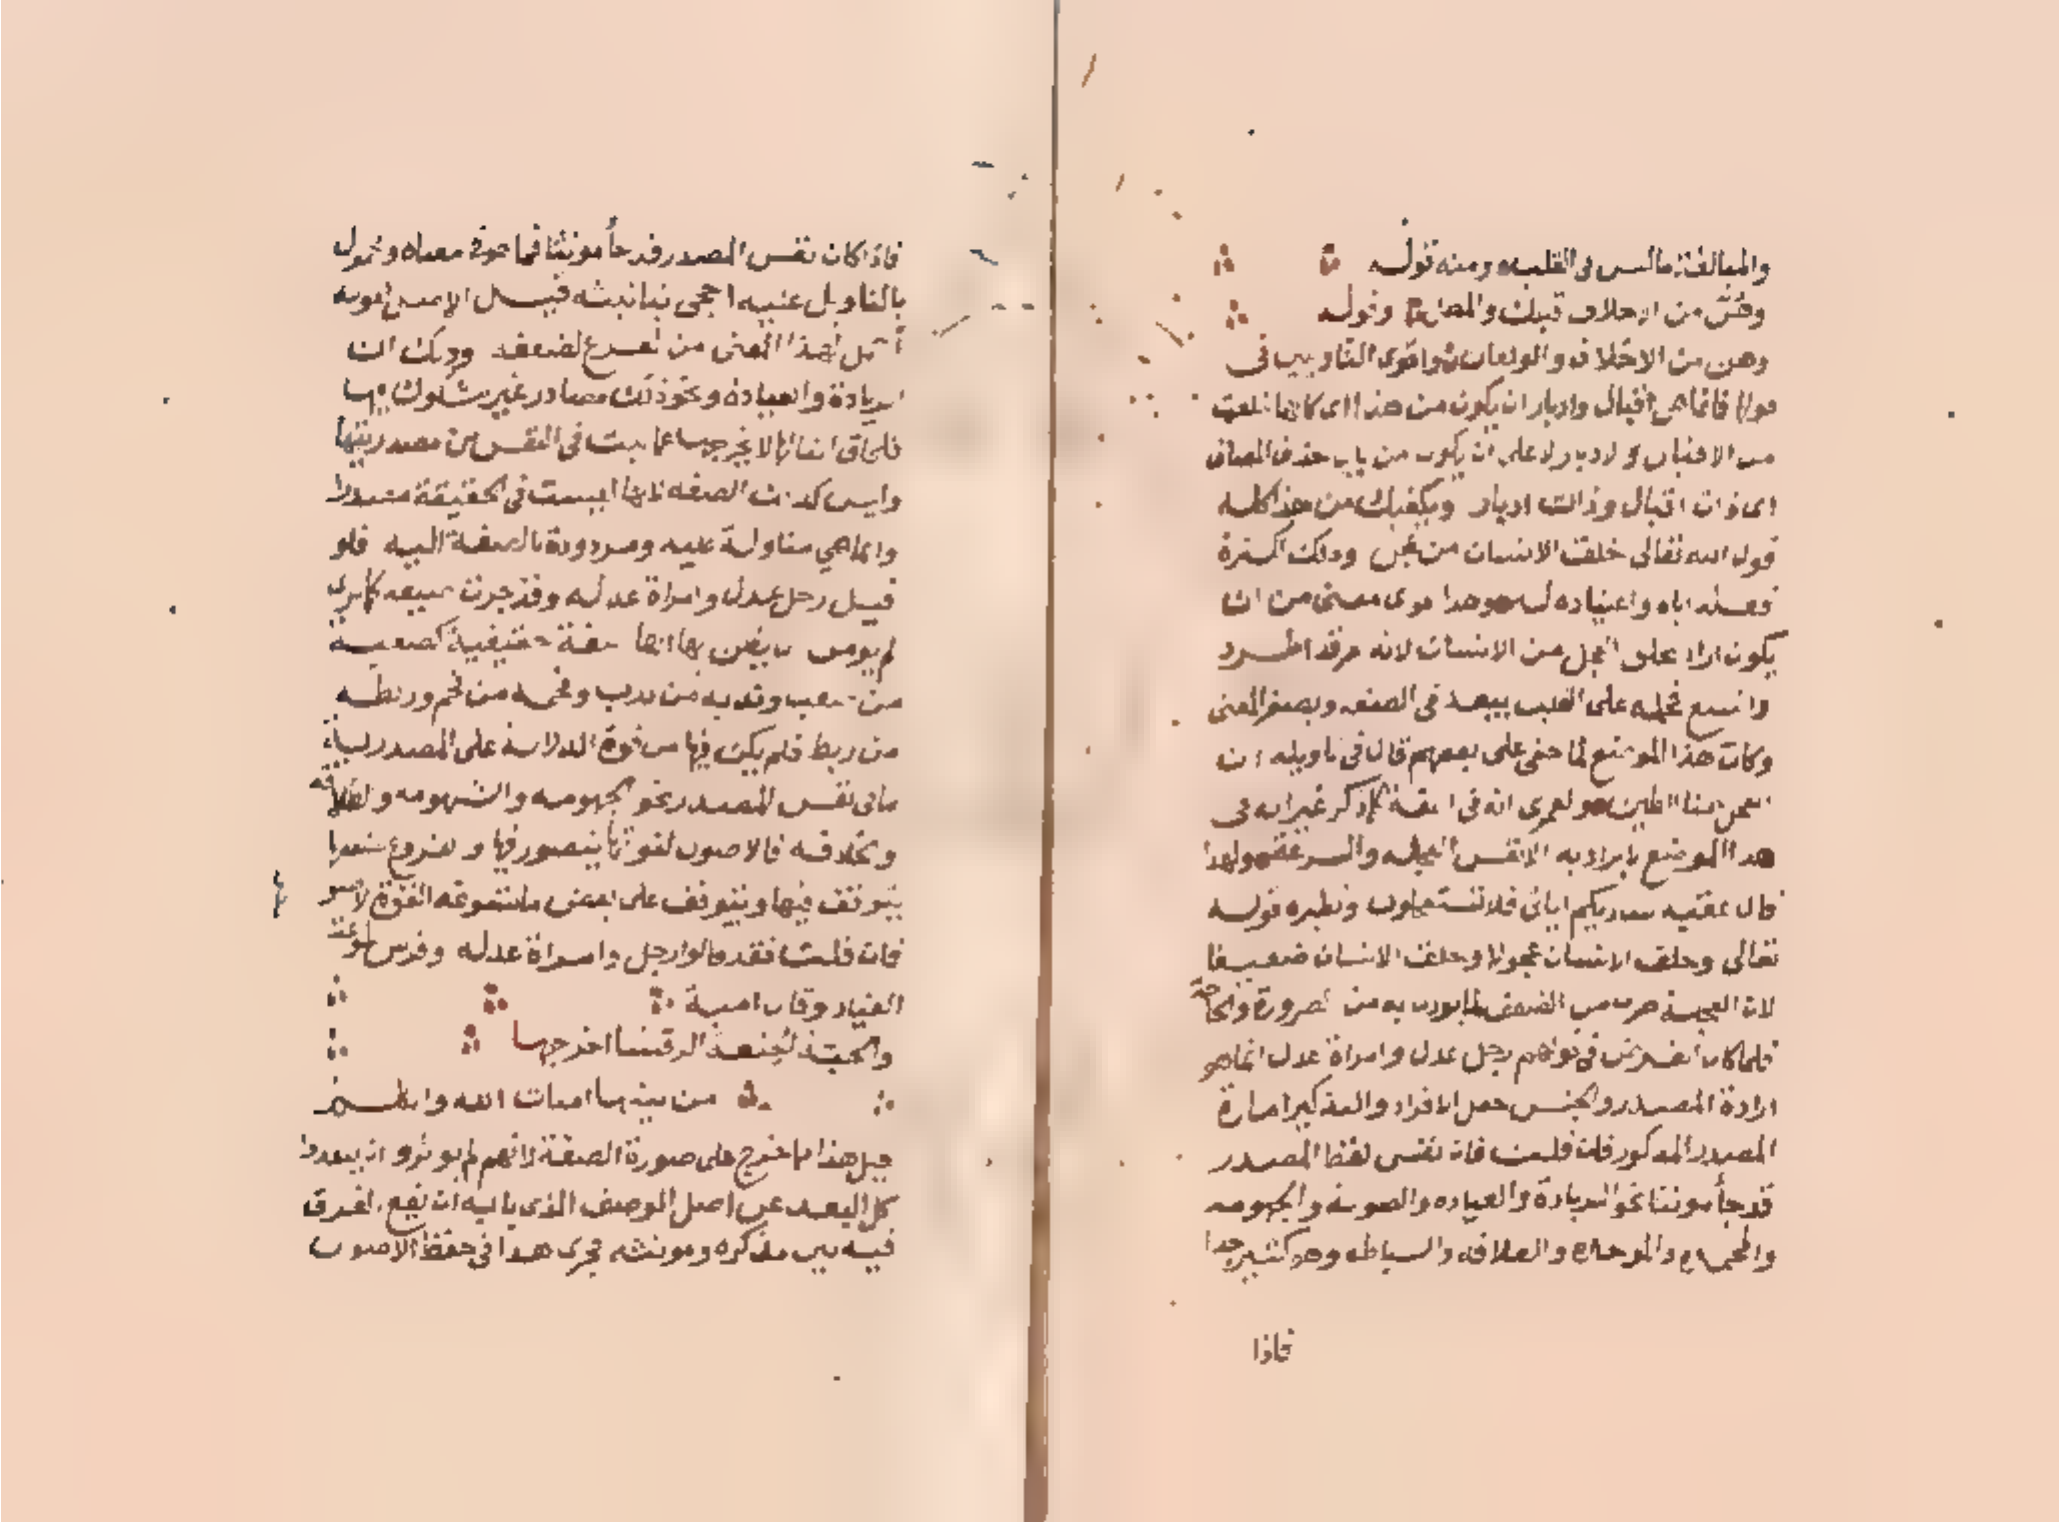 والمبالغة ما ليس في القلب ومنه قوله
وهن من الاخلاف قبلك والمطل وقوله
وهن من الاخلاف والولعان واقوى التاويلين في
قولها فانما هي اقبال وادبار ان يكون من هذا اى كانها خلقت
من الاقبال والادبار لا على ان يكون من باب حذف المضاف
اى ذات اقبال وذات ادبار ويكفيك من هذا كله
قول الله تعالى خلق الانسان من عجل وذلك لكثرة
فعله اياه واعتياده له وهذا اقوى معنى من ان
يكون اراد خلق العجل من الانسان لانه امر قد اطرد
واتسع فحمله على القلب يبعد في الصنعه ويصغر المعنى
وكان هذا الموضع لما خفى على بعضهم قال في تاويله ان
العجل هنا الطين ولعمرى انه في اللغة كما ذكر غير انه في
هذا الموضع لا يراد به الا نفس العجله والسرعة ولهذا
قال عقيبه ساريكم اياتى فلا تستعجلون ونظيره قوله
تعالى وخلق الانسان عجولا وخلق الانسان ضعيفا
لان العجلة ضرب من الضعف لما يوذن به من الضرورة والحاجة
فلما كان الغرض في قولهم رجل عدل وامراة عدل انما هو
ارادة المصدر والجنس جعل الافراد والتذكير امارة
المصدر المذكور فان قلت فان نفس لفظ المصدر
قد جأ مونثا نحو الزيادة والعياده والضوولة والجهومه
والمحمية والموجدة والطلاقه والسباطه وهو كثير جدا
فاذا
فاذا كان نفس المصدر قد جأ مونثا فما هو في معناه ومحمول
بالتاويل عليه احجى بتانيثه قيل الاصل لقوته
أحمل لهذا المعنى من الفرع لضعفه وذلك ان
الزيادة والعيادة ونحو ذلك مصادر غير مشكوك فيها
فلحاق التا لها لا يخرجها عما ثبت في النفس من مصدريتها
وليس كذلك الصفه لانها ليست في الحقيقة مصدرا
وانما هي متاولة عليه ومردودة بالصنعة اليه فلو
قيل رجل عدل وامراة عدله وقد جرت صفة كما ترى
لم يومن ان يظن بها انها صفة حقيقية كصعبة
من صعب وندبه من ندب وفخمه من فخم ورطبه
من رطب فلم يكن فيها من قوة الدلالة على المصدرية
ما في نفس المصدر نحو الجهومه والشهومه والطلاقه
والخلاقه فالاصول لقوتها يتصرف فيها والفروع لضعفها
يتوقف بها ويتوقف على بعض ما تسوغه القوة لاصولها
فان قلت فقد قالوا رجل وامراة عدله وفرس طوعة
القياد وقال امية
والحية الحتفة الرقشا اخرجها
من بيتها امنات الله والكلم
قيل هذا مما خرج على صورة الصفة لانهم لم يوثروا ان يبعدوا
كل البعد عن اصل الوصف الذى بابه ان يقع الفرق
فيه بين مذكره ومونثه فجرى هذا في حفظ الاصول